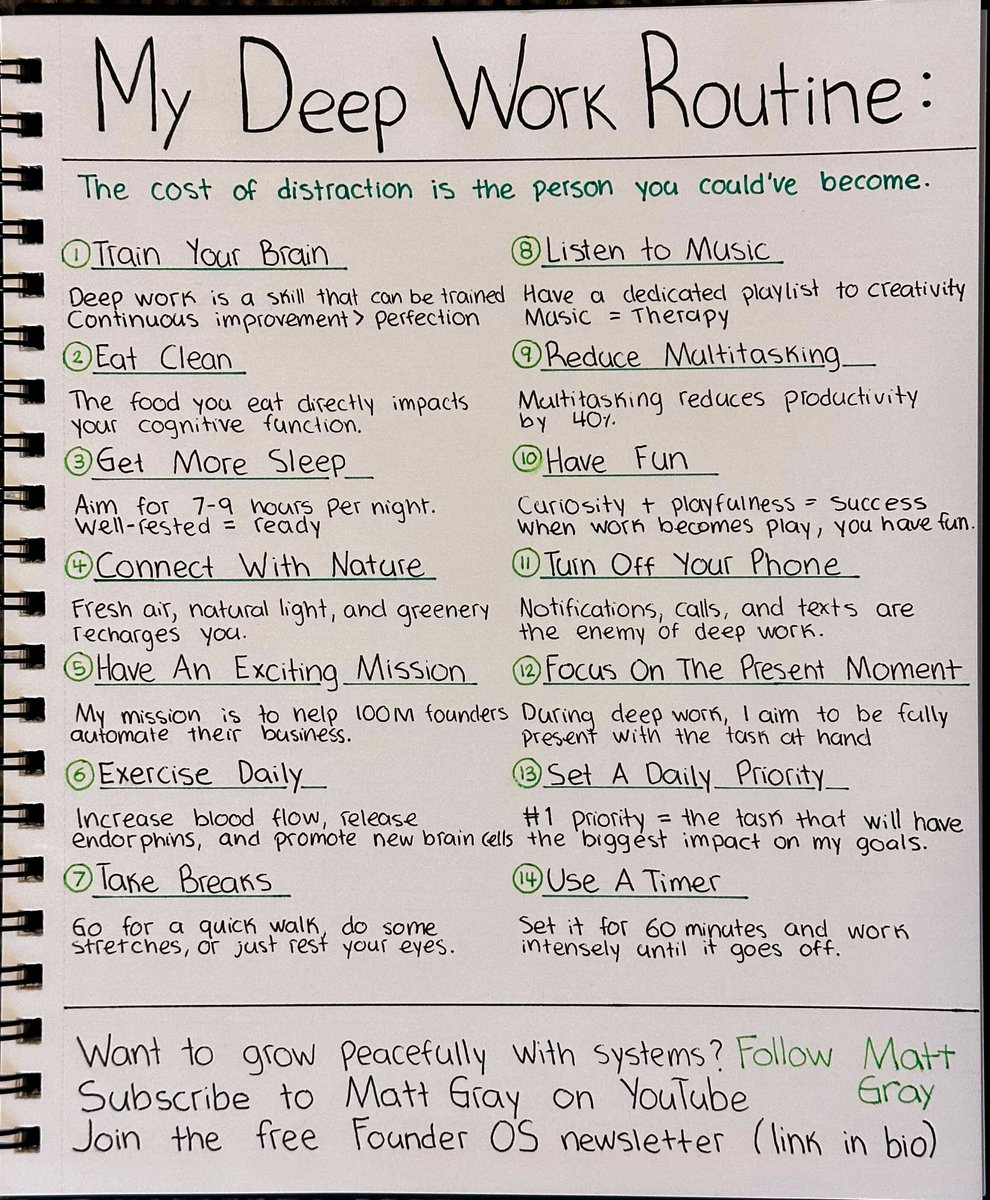 My Deep Work Routine:
The cost of distraction is the person you could've become.
① Train Your Brain
Deep work is a skill that can be trained
Continuous improvement > perfection
② Eat Clean
The food you eat directly impacts
your cognitive function.
③ Get More Sleep
Aim for 7-9 hours per night.
Well-rested = ready
④ Connect With Nature
Fresh air, natural light, and greenery
recharges you.
⑤ Have An Exciting Mission
My mission is to help 100M founders
automate their business.
⑥ Exercise Daily
Increase blood flow, release
endorphins, and promote new brain cells
⑦ Take Breaks
Go for a quick walk, do some
stretches, or just rest your eyes.
⑧ Listen to Music
Have a dedicated playlist to creativity
Music = Therapy
⑨ Reduce Multitasking
Multitasking reduces productivity
by 40%.
⑩ Have Fun
Curiosity + playfulness = success
When work becomes play, you have fun.
⑪ Turn Off Your Phone
Notifications, calls, and texts are
the enemy of deep work.
⑫ Focus On The Present Moment
During deep work, I aim to be fully
present with the task at hand
⑬ Set A Daily Priority
#1 priority = the task that will have
the biggest impact on my goals.
⑭ Use A Timer
Set it for 60 minutes and work
intensely until it goes off.
Want to grow peacefully with systems? Follow Matt
Gray
Subscribe to Matt Gray on YouTube
Join the free Founder OS newsletter (link in bio)